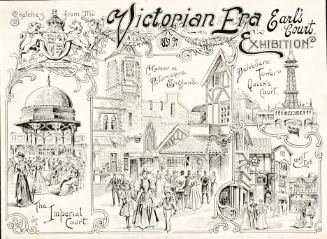 Sketches from The
Victorian Era
Earl's
Court
EXHIBITION
A Corner in
Picturesque
England.
Belvedere
Tower
Queen's
Court.
The Imperial
Court.